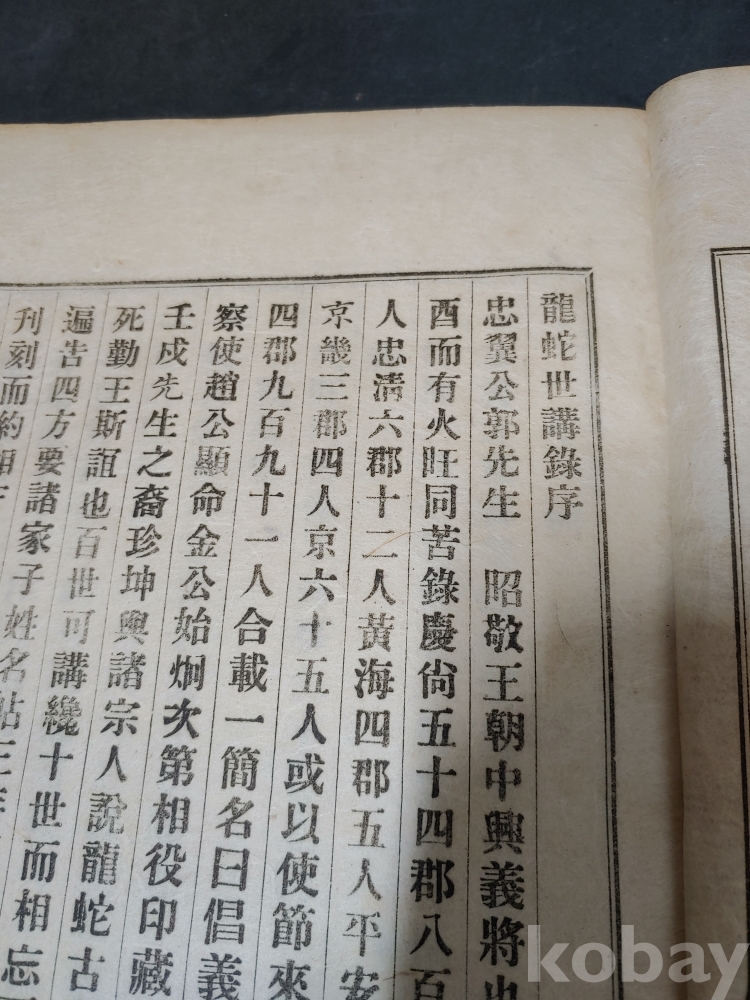 龍蛇世講錄序
忠翼公郭先生 昭敬王朝中興義將也
酉而有火旺同苦錄慶尙五十四郡八百
人忠淸六郡十二人黃海四郡五人平安
京畿三郡四人京六十五人或以使節來
四郡九百九十一人合載一簡名曰倡義
察使趙公顯命金公始炯次第相役印藏
壬戍先生之裔珍坤與諸宗人說龍蛇古
死勤王斯誼也百世可講纔十世而相忘
遍告四方要諸家子姓名帖三
刊刻而約相
kobay